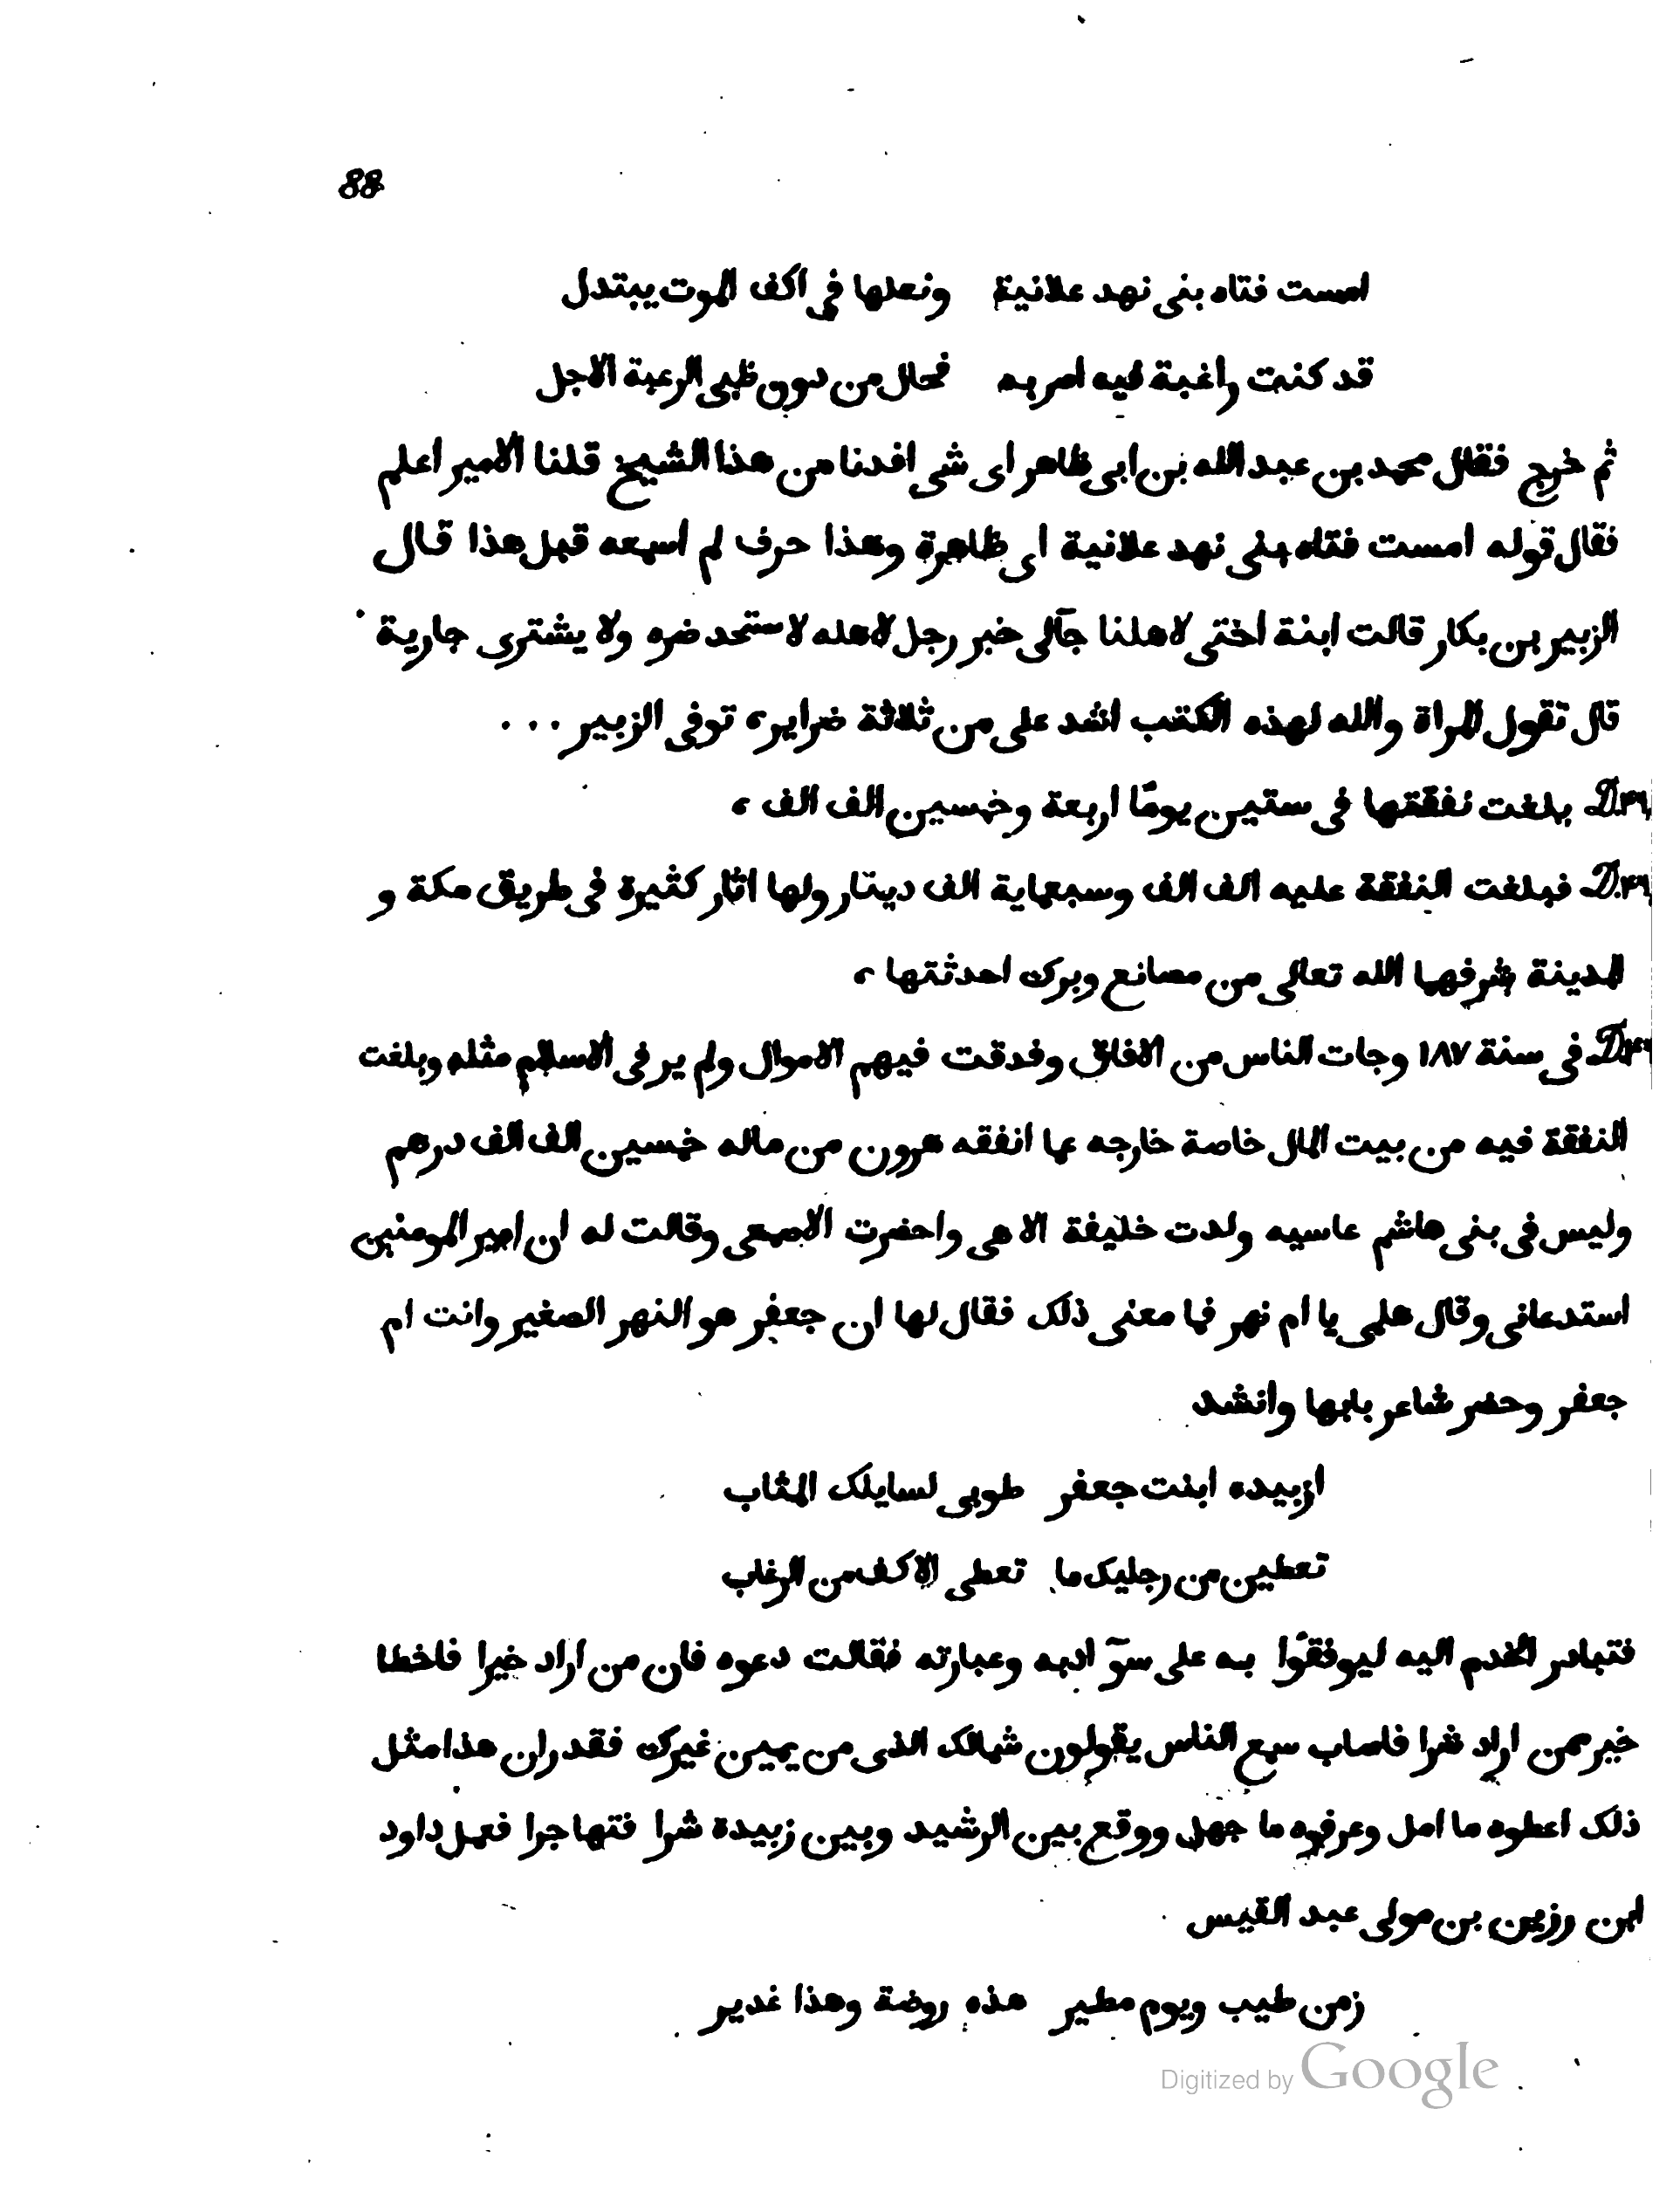 88
امست فتاه بنى نهد علانية ونعلها فى اكف الموت يبتدل
قد كنت راغبة فيه امر به فحال من دون ظبى الرعبة الاجل
ثم خرج فقال محمد بن عبد الله بن ابى ظاهر اى شى افدنا من هذا الشيخ قلنا الامير اعلم
فقال قوله امست فتاه بنى نهد علانية اى ظاهرة وهذا حرف لم اسمعه قبل هذا قال
الزبير بن بكار قالت ابنة اختى لاهلنا جآلى خبر رجل لاهله لا ستحد ضره ولا يشترى جارية
قال تقول المراة والله لهذه الكتب اشد على من ثلاثة ضراير، توفى الزبير ...
بلغت نفقتها فى ستين يومًا اربعة وخمسين الف الف ،
فبلغت النفقة عليه الف الف وسبعماية الف دينار ولها اثار كثيرة فى طريق مكة و
المدينة شرفهما الله تعالى من مصانع وبرك احدثتها ،
فى سنة ١٨٧ وجات الناس من الافاق وفدقت فيهم الاموال ولم ير فى الاسلام مثله وبلغت
النفقة فيه من بيت المال خاصة خارجه عما انفقه هرون من ماله خمسين الف الف درهم
وليس فى بنى هاشم عاسيه ولدت خليفة الا هى واحضرت الاصمعى وقالت له ان امير المومنين
استدعانى وقال هلمى يا ام نهر فما معنى ذلك فقال لها ان جعفر هو النهر الصغير وانت ام
جعفر وحضر شاعر بابها وانشد
ازبيده ابنت جعفر طوبى لسايلك المثاب
تعطين من رجليك ما تعطى الاكف من الرغاب
فتبادر الخدم اليه ليوفقوا به على سوٓ ادبه وعبارته فقالت دعوه فان من اراد خيرا فاخطا
خير ممن اراد شرا فاصاب سمع الناس يقولون شمالك الذى من يمين غيرك فقدر ان هذا مثل
ذلك اعطوه ما امل وعرفوه ما جهل ووقع بين الرشيد وبين زبيدة شرا فتهاجرا فعمل داود
ابن رزين بن مولى عبد القيس
زمن طيب ويوم مطير هذه روضة وهذا غدير
Digitized by Google